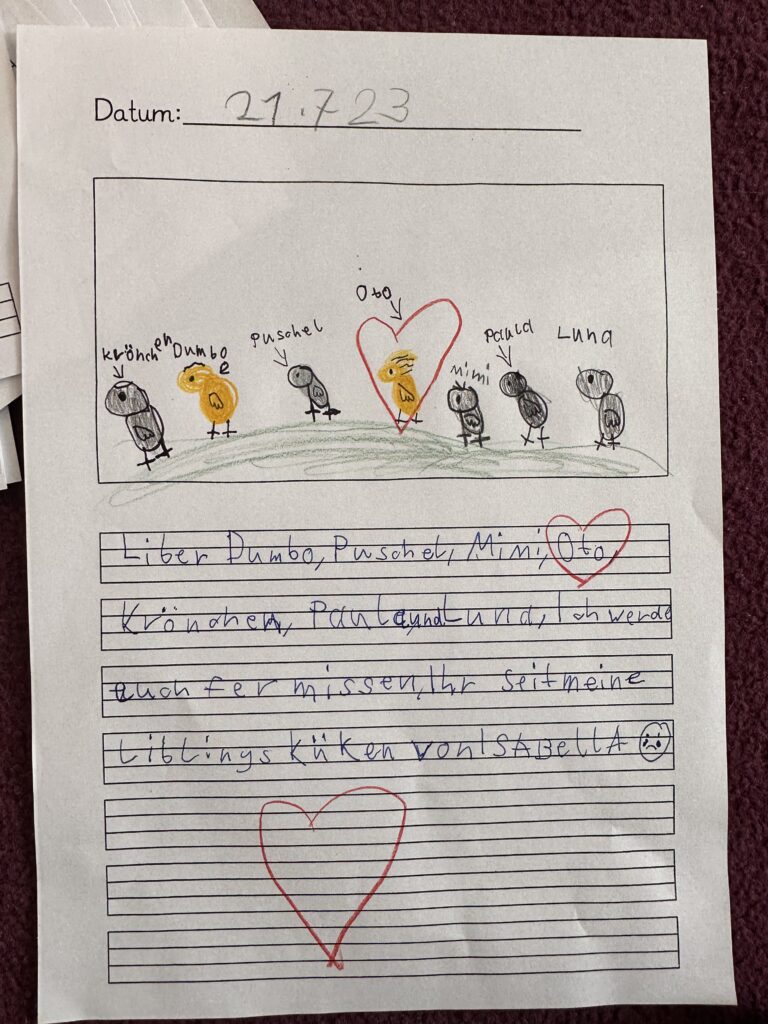 Datum: 21.7 23
Oto
Krönchen Dumbo Puschel Mimi Paula Luna
Liber Dumbo, Puschel, Mimi, Oto,
Krönchen, Paula, und Luna, Ich werde
euch fer missen, Ihr seit meine
Liblings Küken von ISABellA